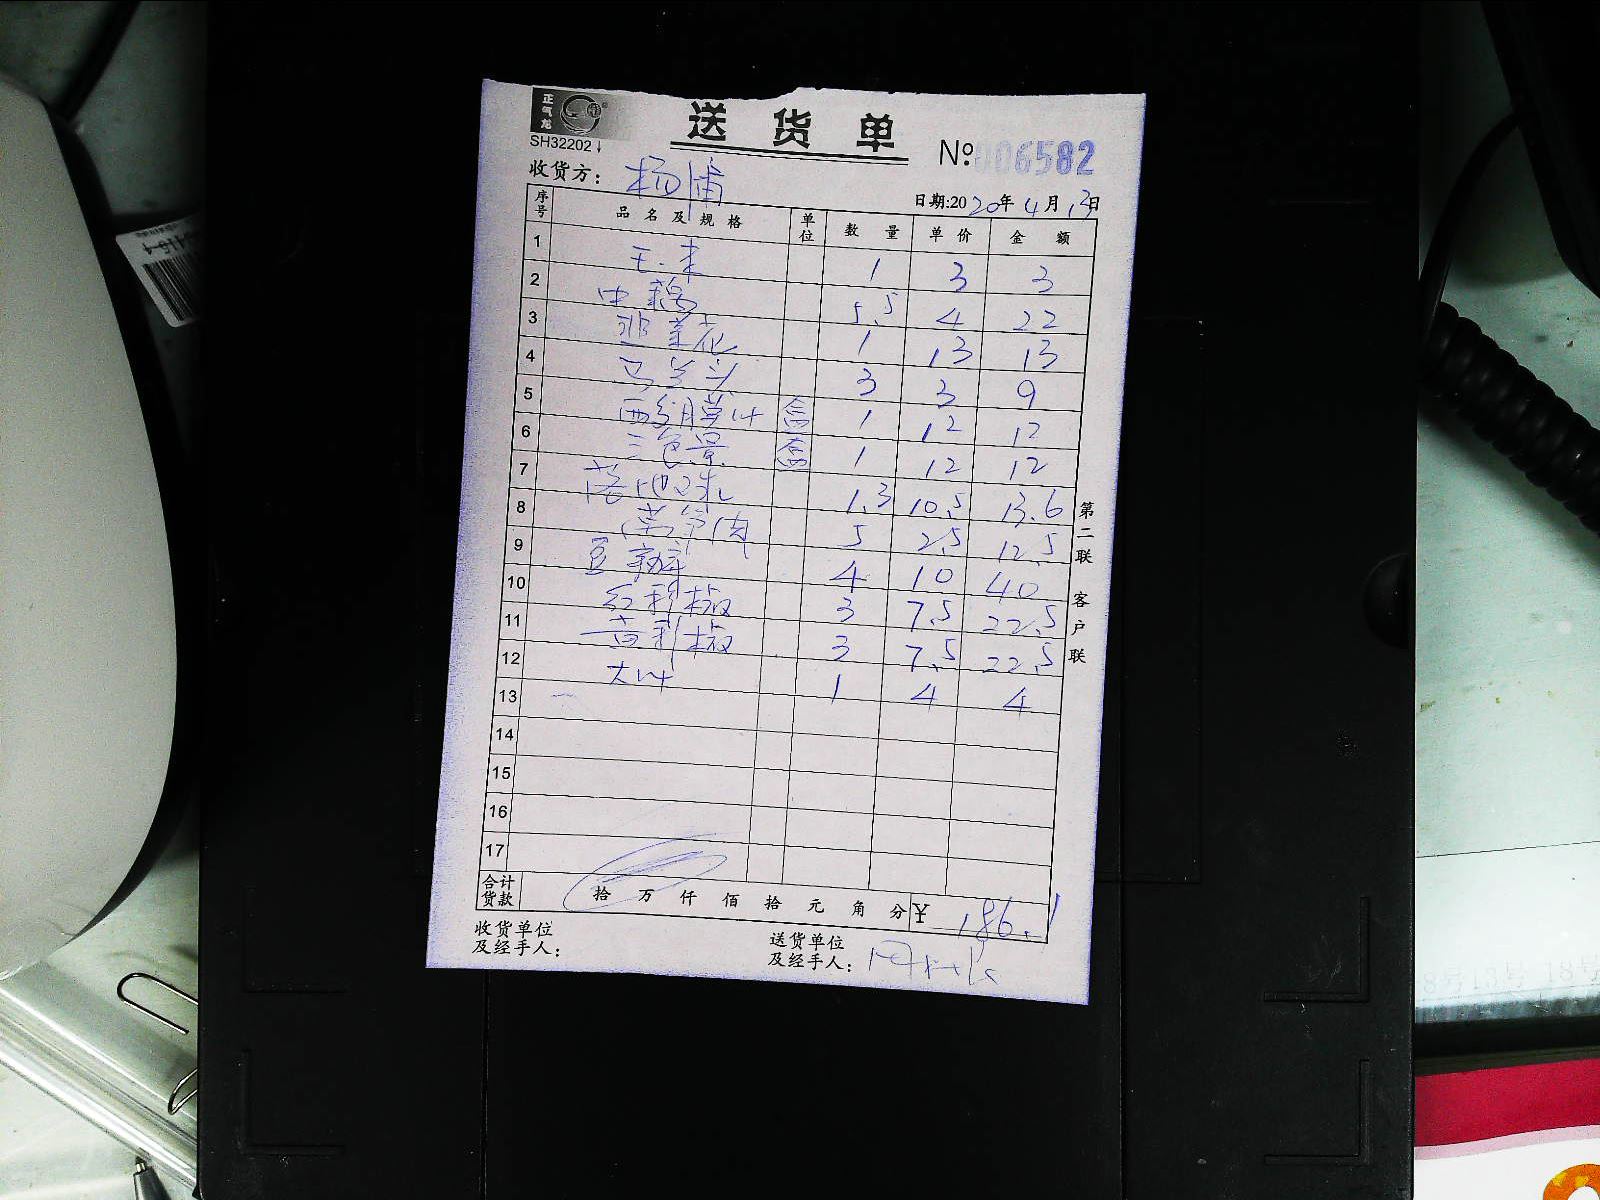 正气龙
送货单
SH32202
No: 006582
收货方: 杨浦
日期:2020年4月13日
序号 品名及规格 单位 数量 单价 金额
1 毛.末 1 3 3
2 中 5.5 4 22
3 韭菜花 1 13 13
4 马兰头 3 3 9
5 盒 1 12 12
6 三色堇 盒 1 12 12
7 1.3 10.5 13.6
8 5 2.5 12.5
9 豆 4 10 40
10 红利椒 3 7.5 22.5
11 黄利椒 3 7.5 22.5
12 大叶 1 4 4
13
14
15
16
17
合计货款 拾 万 仟 佰 拾 元 角 分 ¥ 186.1
收货单位及经手人:
送货单位及经手人:
第二联 客户联